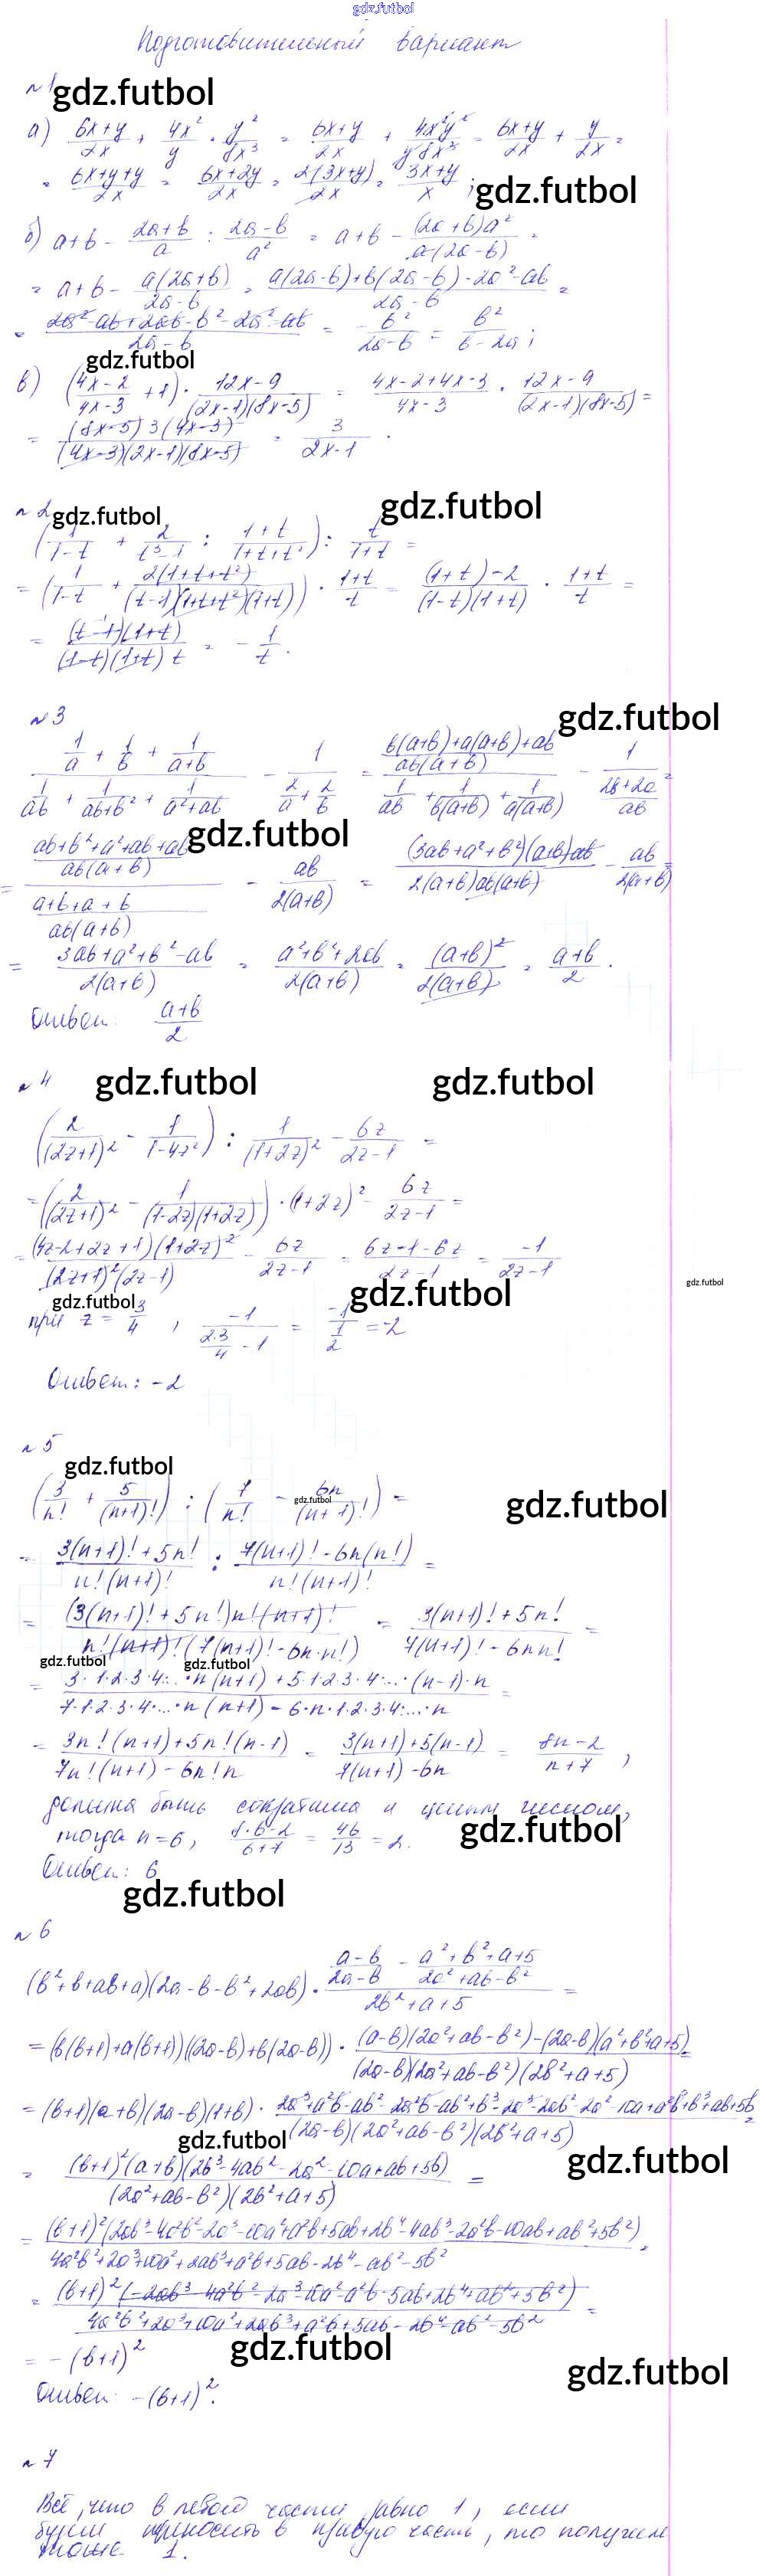 gdz.futbol
Подготовительный вариант
n 1 gdz.futbol
а) (6x+y)/2x + 4x²/y · y²/8x³ = (6x+y)/2x + 4x²y²/y8x³ = (6x+y)/2x + y/2x =
= (6x+y+y)/2x = (6x+2y)/2x = 2(3x+y)/2x = (3x+y)/x ; gdz.futbol
б) a+b - (2a+b)/a : (2a-b)/a² = a+b - (2a+b)a²/a(2a-b) =
= a+b - a(2a+b)/(2a-b) = (a(2a-b)+b(2a-b)-2a²-ab)/(2a-b) =
= (2a²-ab+2ab-b²-2a²-ab)/(2a-b) = - b²/(2a-b) = b²/(b-2a) ;
gdz.futbol
в) ((4x-2)/(4x-3) + 1) · (12x-9)/((2x-1)(8x-5)) = (4x-2+4x-3)/(4x-3) · (12x-9)/((2x-1)(8x-5)) =
= (8x-5)3(4x-3)/((4x-3)(2x-1)(8x-5)) = 3/(2x-1) .
n 2 gdz.futbol gdz.futbol
(1/(1-t) + 2/(t³-1) : (1+t)/(1+t+t²)) : t/(1+t) =
= (1/(1-t) + 2(1+t+t²)/((t-1)(1+t+t²)(1+t))) · (1+t)/t = ((1+t)-2)/((1-t)(1+t)) · (1+t)/t =
= (t-1)(1+t)/((1-t)(1+t)t) = - 1/t .
n 3 gdz.futbol
(1/a + 1/b + 1/(a+b))/(1/ab + 1/(ab+b²) + 1/(a²+ab)) - 1/(2/a + 2/b) = ((b(a+b)+a(a+b)+ab)/ab(a+b))/(1/ab + 1/b(a+b) + 1/a(a+b)) - 1/((2b+2a)/ab) =
gdz.futbol
= ((ab+b²+a²+ab+ab)/ab(a+b))/((a+b+a+b)/ab(a+b)) - ab/2(a+b) = (3ab+a²+b²)(a+b)ab/(2(a+b)ab(a+b)) - ab/2(a+b) =
= (3ab+a²+b²-ab)/2(a+b) = (a²+b²+2ab)/2(a+b) = (a+b)²/2(a+b) = (a+b)/2 .
Ответ: (a+b)/2
n 4 gdz.futbol gdz.futbol
(2/(2z+1)² - 1/(1-4z²)) : 1/(1+2z)² - 6z/(2z-1) =
= (2/(2z+1)² - 1/((1-2z)(1+2z))) · (1+2z)² - 6z/(2z-1) =
= (4z-2+2z+1)(1+2z)²/((2z+1)²(2z-1)) - 6z/(2z-1) = (6z-1-6z)/(2z-1) = -1/(2z-1)
gdz.futbol gdz.futbol gdz.futbol
при z = 3/4 , -1/(2·3/4 - 1) = -1/(1/2) = -2
Ответ: -2
n 5
gdz.futbol
(3/n! + 5/(n+1)!) : (7/n! - 6n/(n+1)!) =
gdz.futbol gdz.futbol
= (3(n+1)!+5n!)/(n!(n+1)!) : (7(n+1)!-6n(n!))/(n!(n+1)!) =
= (3(n+1)!+5n!)n!(n+1)!/(n!(n+1)!(7(n+1)!-6n·n!)) = (3(n+1)!+5n!)/(7(n+1)!-6nn!) =
gdz.futbol gdz.futbol
= (3·1·2·3·4·...·n(n+1)+5·1·2·3·4·...·(n-1)·n)/(7·1·2·3·4·...·n(n+1)-6·n·1·2·3·4·...·n) =
= (3n!(n+1)+5n!(n-1))/(7n!(n+1)-6n!n) = (3(n+1)+5(n-1))/(7(n+1)-6n) = (8n-2)/(n+7) ,
должна быть сократима и целым числом,
тогда n=6, (8·6-2)/(6+7) = 46/13 = 2. gdz.futbol
Ответ: 6
gdz.futbol
n 6
(b²+b+ab+a)(2a-b-b²+2ab) · ((a-b)/(2a-b) - (a²+b²+a+5)/(2a²+ab-b²))/(2b²+a+5) =
= (b(b+1)+a(b+1))((2a-b)+b(2a-b)) · ((a-b)(2a²+ab-b²)-(2a-b)(a²+b²+a+5))/((2a-b)(2a²+ab-b²)(2b²+a+5)) =
= (b+1)(a+b)(2a-b)(1+b) · (2a³+a²b-ab²-2a²b-ab²+b³-2a³-2ab²-2a²-10a+a²b+b³+ab+5b)/((2a-b)(2a²+ab-b²)(2b²+a+5)) =
gdz.futbol gdz.futbol
= (b+1)²(a+b)(2b³-4ab²-2a²-10a+ab+5b)/((2a²+ab-b²)(2b²+a+5)) =
= (b+1)²(2ab³-4a²b²-2a³-10a²+a²b+5ab+2b⁴-4ab³-2a²b-10ab+ab²+5b²)/(4a²b²+2a³+10a²+2ab³+a²b+5ab-2b⁴-ab²-5b²) =
= (b+1)²(-2ab³-4a²b²-2a³-10a²-a²b-5ab+2b⁴+ab²+5b²)/(4a²b²+2a³+10a²+2ab³+a²b+5ab-2b⁴-ab²-5b²) =
gdz.futbol
= -(b+1)²
gdz.futbol
Ответ: -(b+1)².
n 7
Всё, что в левой части равно 1, если
будем приносить в правую часть, то получим
тоже 1.